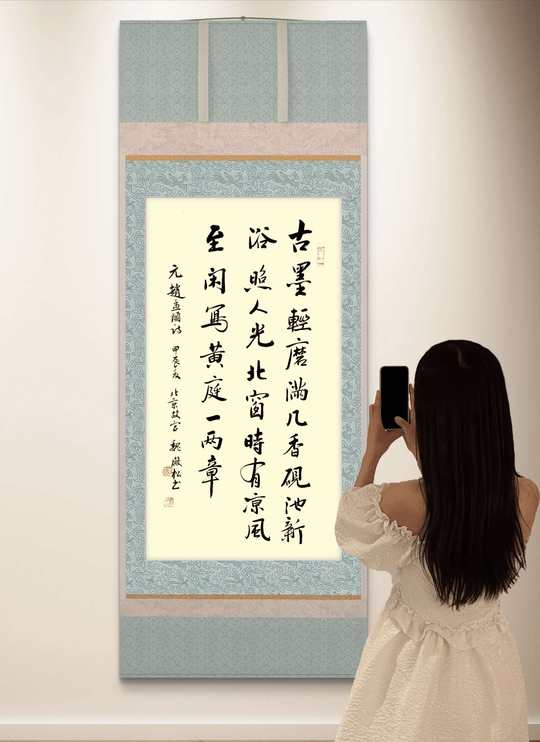 古墨輕磨滿几香硯池新
浴照人光北窗時有凉風
至闲寫黄庭一两章
元趙孟頫诗 甲辰 北京故宫 魏 松书